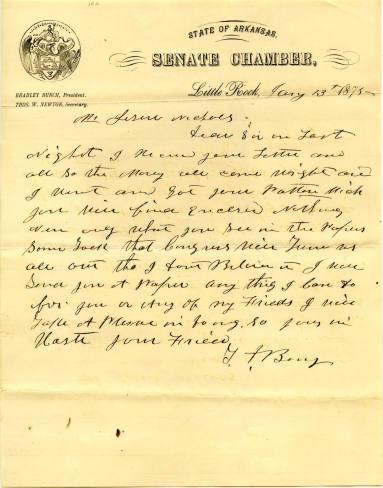 STATE OF ARKANSAS.
SENATE CHAMBER,
BRADLEY BUNCH, President.
THOS. W. NEWTON, Secretary.
Little Rock, Jany 13th 1875
Mr Nichols
Dear Sir on Last
Night I your Letter and
all so the Money all came and
I went and got your which
you will find Nothing
New only what you see in the Papers
Some talk that Congress will us
all out tho I dont I will
Send you A Paper any thing I Can do
for you or Any of my Friends I will
take A in doing, So yours in
Haste your Friend
Berry